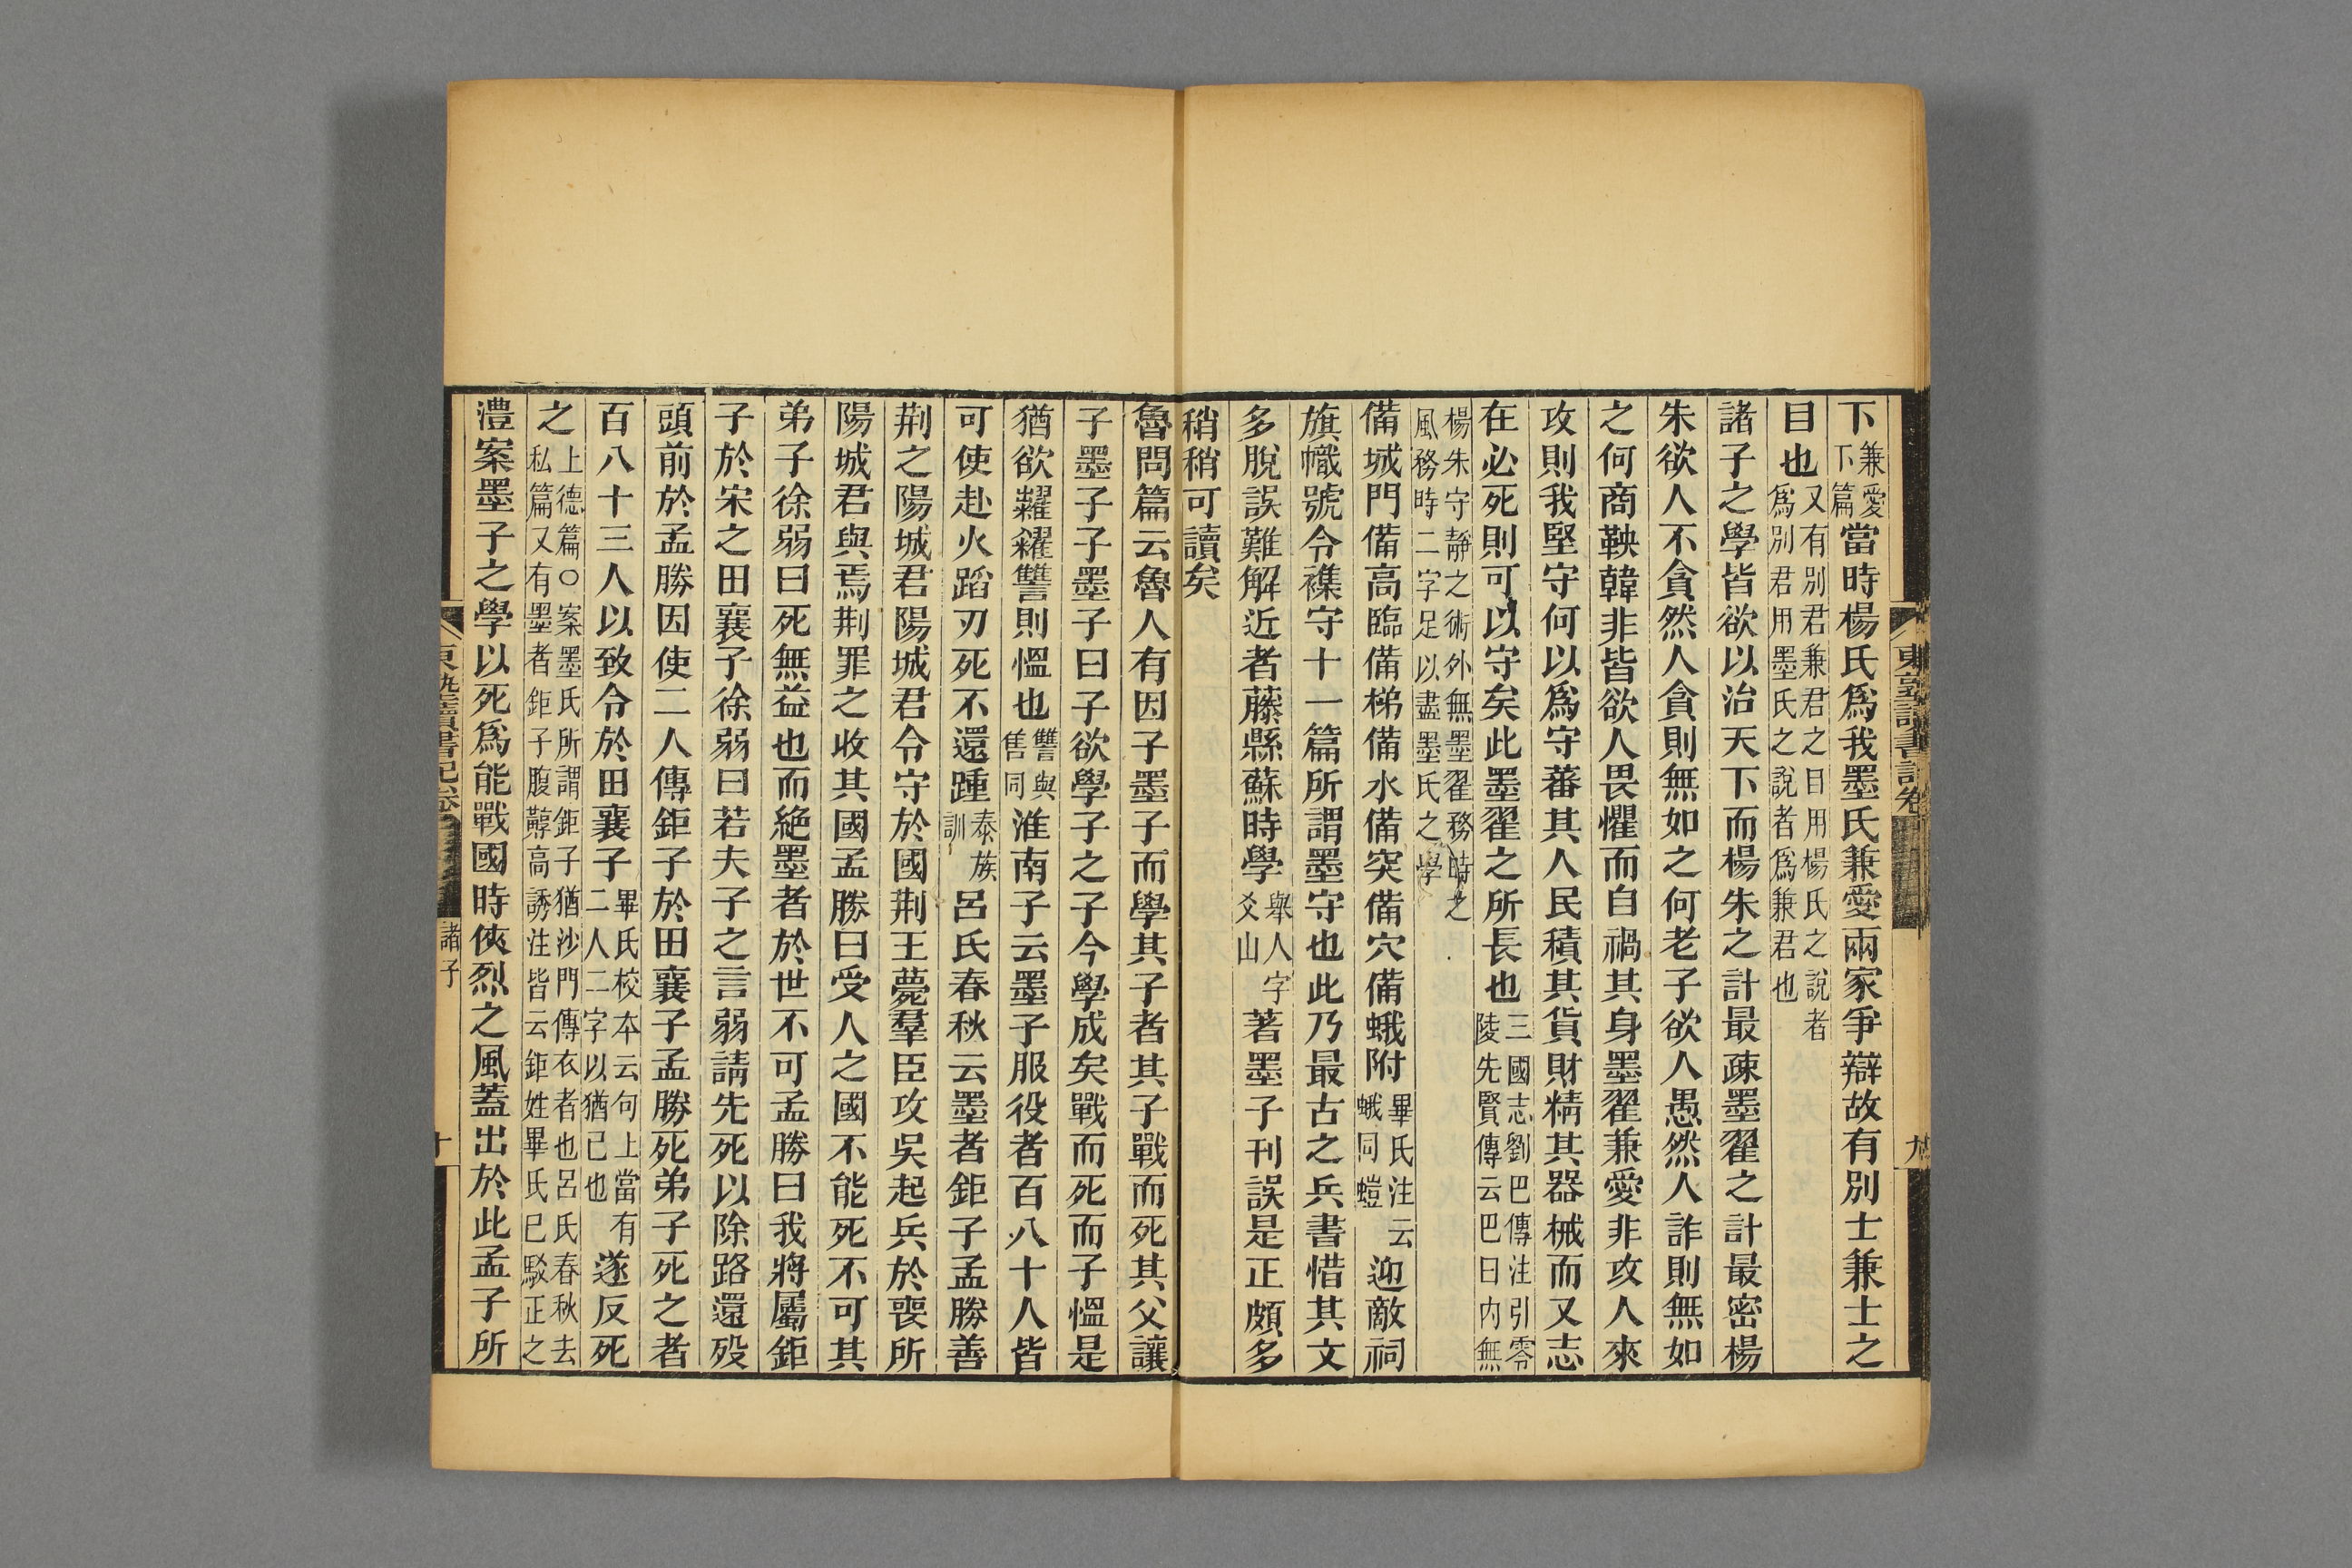 東塾讀書記卷
九
下兼愛下篇當時楊氏爲我墨氏兼愛兩家爭辯故有別士兼士之
目也又有別君兼君之目用楊氏之說者爲別君用墨氏之說者爲兼君也
諸子之學皆欲以治天下而楊朱之計最疎墨翟之計最密楊
朱欲人不貪然人貪則無如之何老子欲人愚然人詐則無如
之何商鞅韓非皆欲人畏懼而自禍其身墨翟兼愛非攻人來
攻則我堅守何以爲守蕃其人民積其貨財精其器械而又志
在必死則可以守矣此墨翟之所長也三國志劉巴傳注引零陵先賢傳云巴曰內無
楊朱守靜之術外無墨翟務時之風務時二字足以盡墨氏之學
備城門備高臨備梯備水備突備穴備蛾附畢氏注云蛾同螘迎敵祠
旗幟號令襍守十一篇所謂墨守也此乃最古之兵書惜其文
多脫誤難解近者藤縣蘇時學舉人字爻山著墨子刊誤是正頗多
稍稍可讀矣
魯問篇云魯人有因子墨子而學其子者其子戰而死其父讓
子墨子子墨子曰子欲學子之子今學成矣戰而死而子慍是
猶欲糶糴讐則慍也讐與售同淮南子云墨子服役者百八十人皆
可使赴火蹈刃死不還踵泰族訓呂氏春秋云墨者鉅子孟勝善
荆之陽城君陽城君令守於國荆王薨羣臣攻吳起兵於喪所
陽城君與焉荆罪之收其國孟勝曰受人之國不能死不可其
弟子徐弱曰死無益也而絕墨者於世不可孟勝曰我將屬鉅
子於宋之田襄子徐弱曰若夫子之言弱請先死以除路還歿
頭前於孟勝因使二人傳鉅子於田襄子孟勝死弟子死之者
百八十三人以致令於田襄子畢氏校本云句上當有二人二字以猶已也遂反死
之上德篇○案墨氏所謂鉅子猶沙門傳衣者也呂氏春秋去私篇又有墨者鉅子腹䵍高誘注皆云鉅姓畢氏已駁正之
澧案墨子之學以死爲能戰國時俠烈之風蓋出於此孟子所
東塾讀書記卷
諸子
十